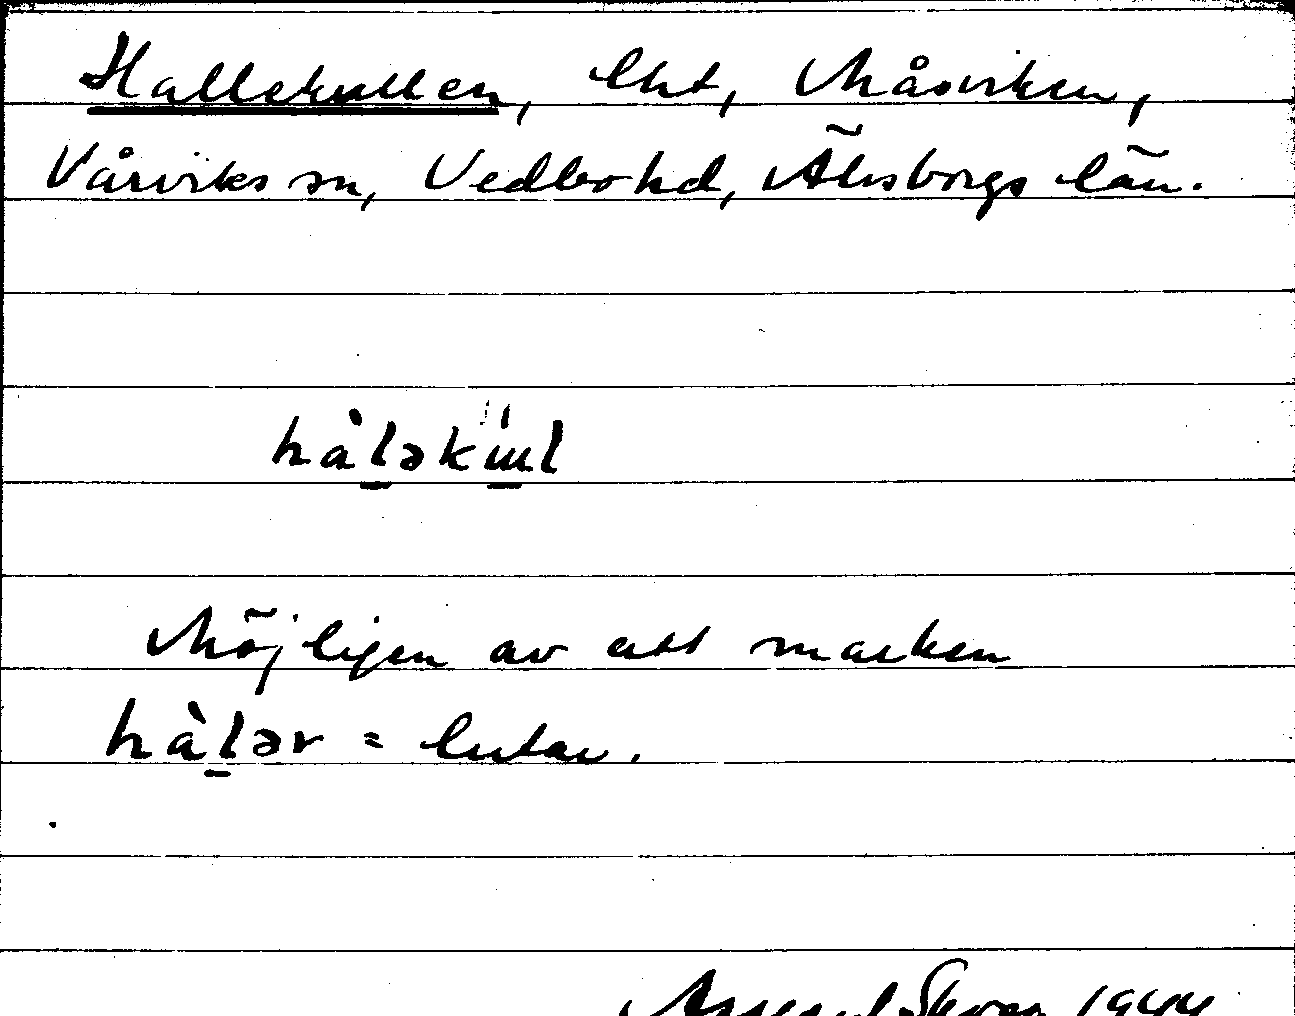 Hallekullen, lht, Måsviken,
Vårviks sn, Vedbo hd, Älvsborgs län.
hàləkɯl
Möjligen av att marken
hàlər = lutar.
1944